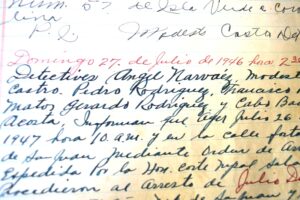 Num. 57 de Isla Verde a Caro
lina
P.R. Modesto Castro
Domingo 27 de Julio de 1946 hora 2:30
Detectives Angel Narvaez, Modesto
Castro. Pedro Rodriguez, Francisco
Matos Gerardo Rodriguez y Cabo
Acosta. Informan que ayer Julio 26
1947 hora 10 a.m. y en la calle
de San Juan Mediante Orden de
Expedida Por la Hon. Corte Mpal.
Procedieron al Arresto de Julio
de San Juan y